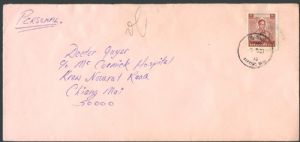 PERSONAL
Doctor Guyer
c/o Mc Cormick Hospital
Kaew Nawarat Road
Chiang Mai
50000